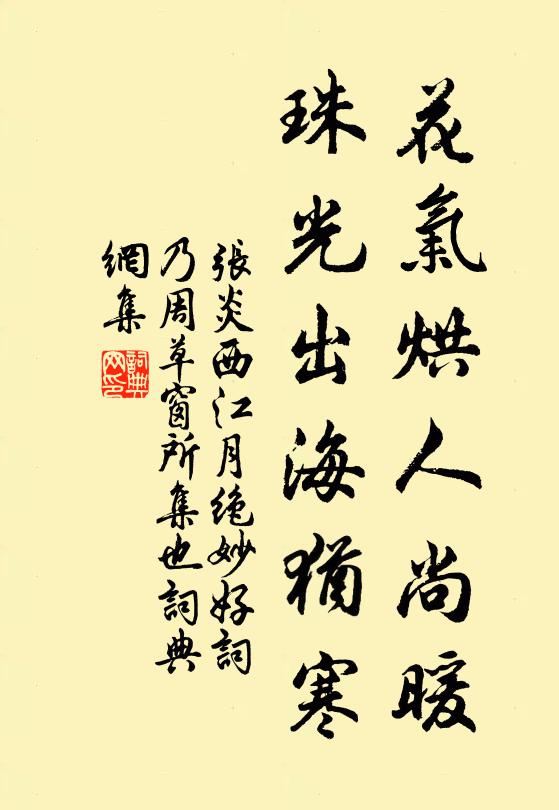 花氣烘人尚暖
珠光出海猶寒
張炎西江月絶妙好詞
乃周草窗所集也詞典
網集
詞典
网印